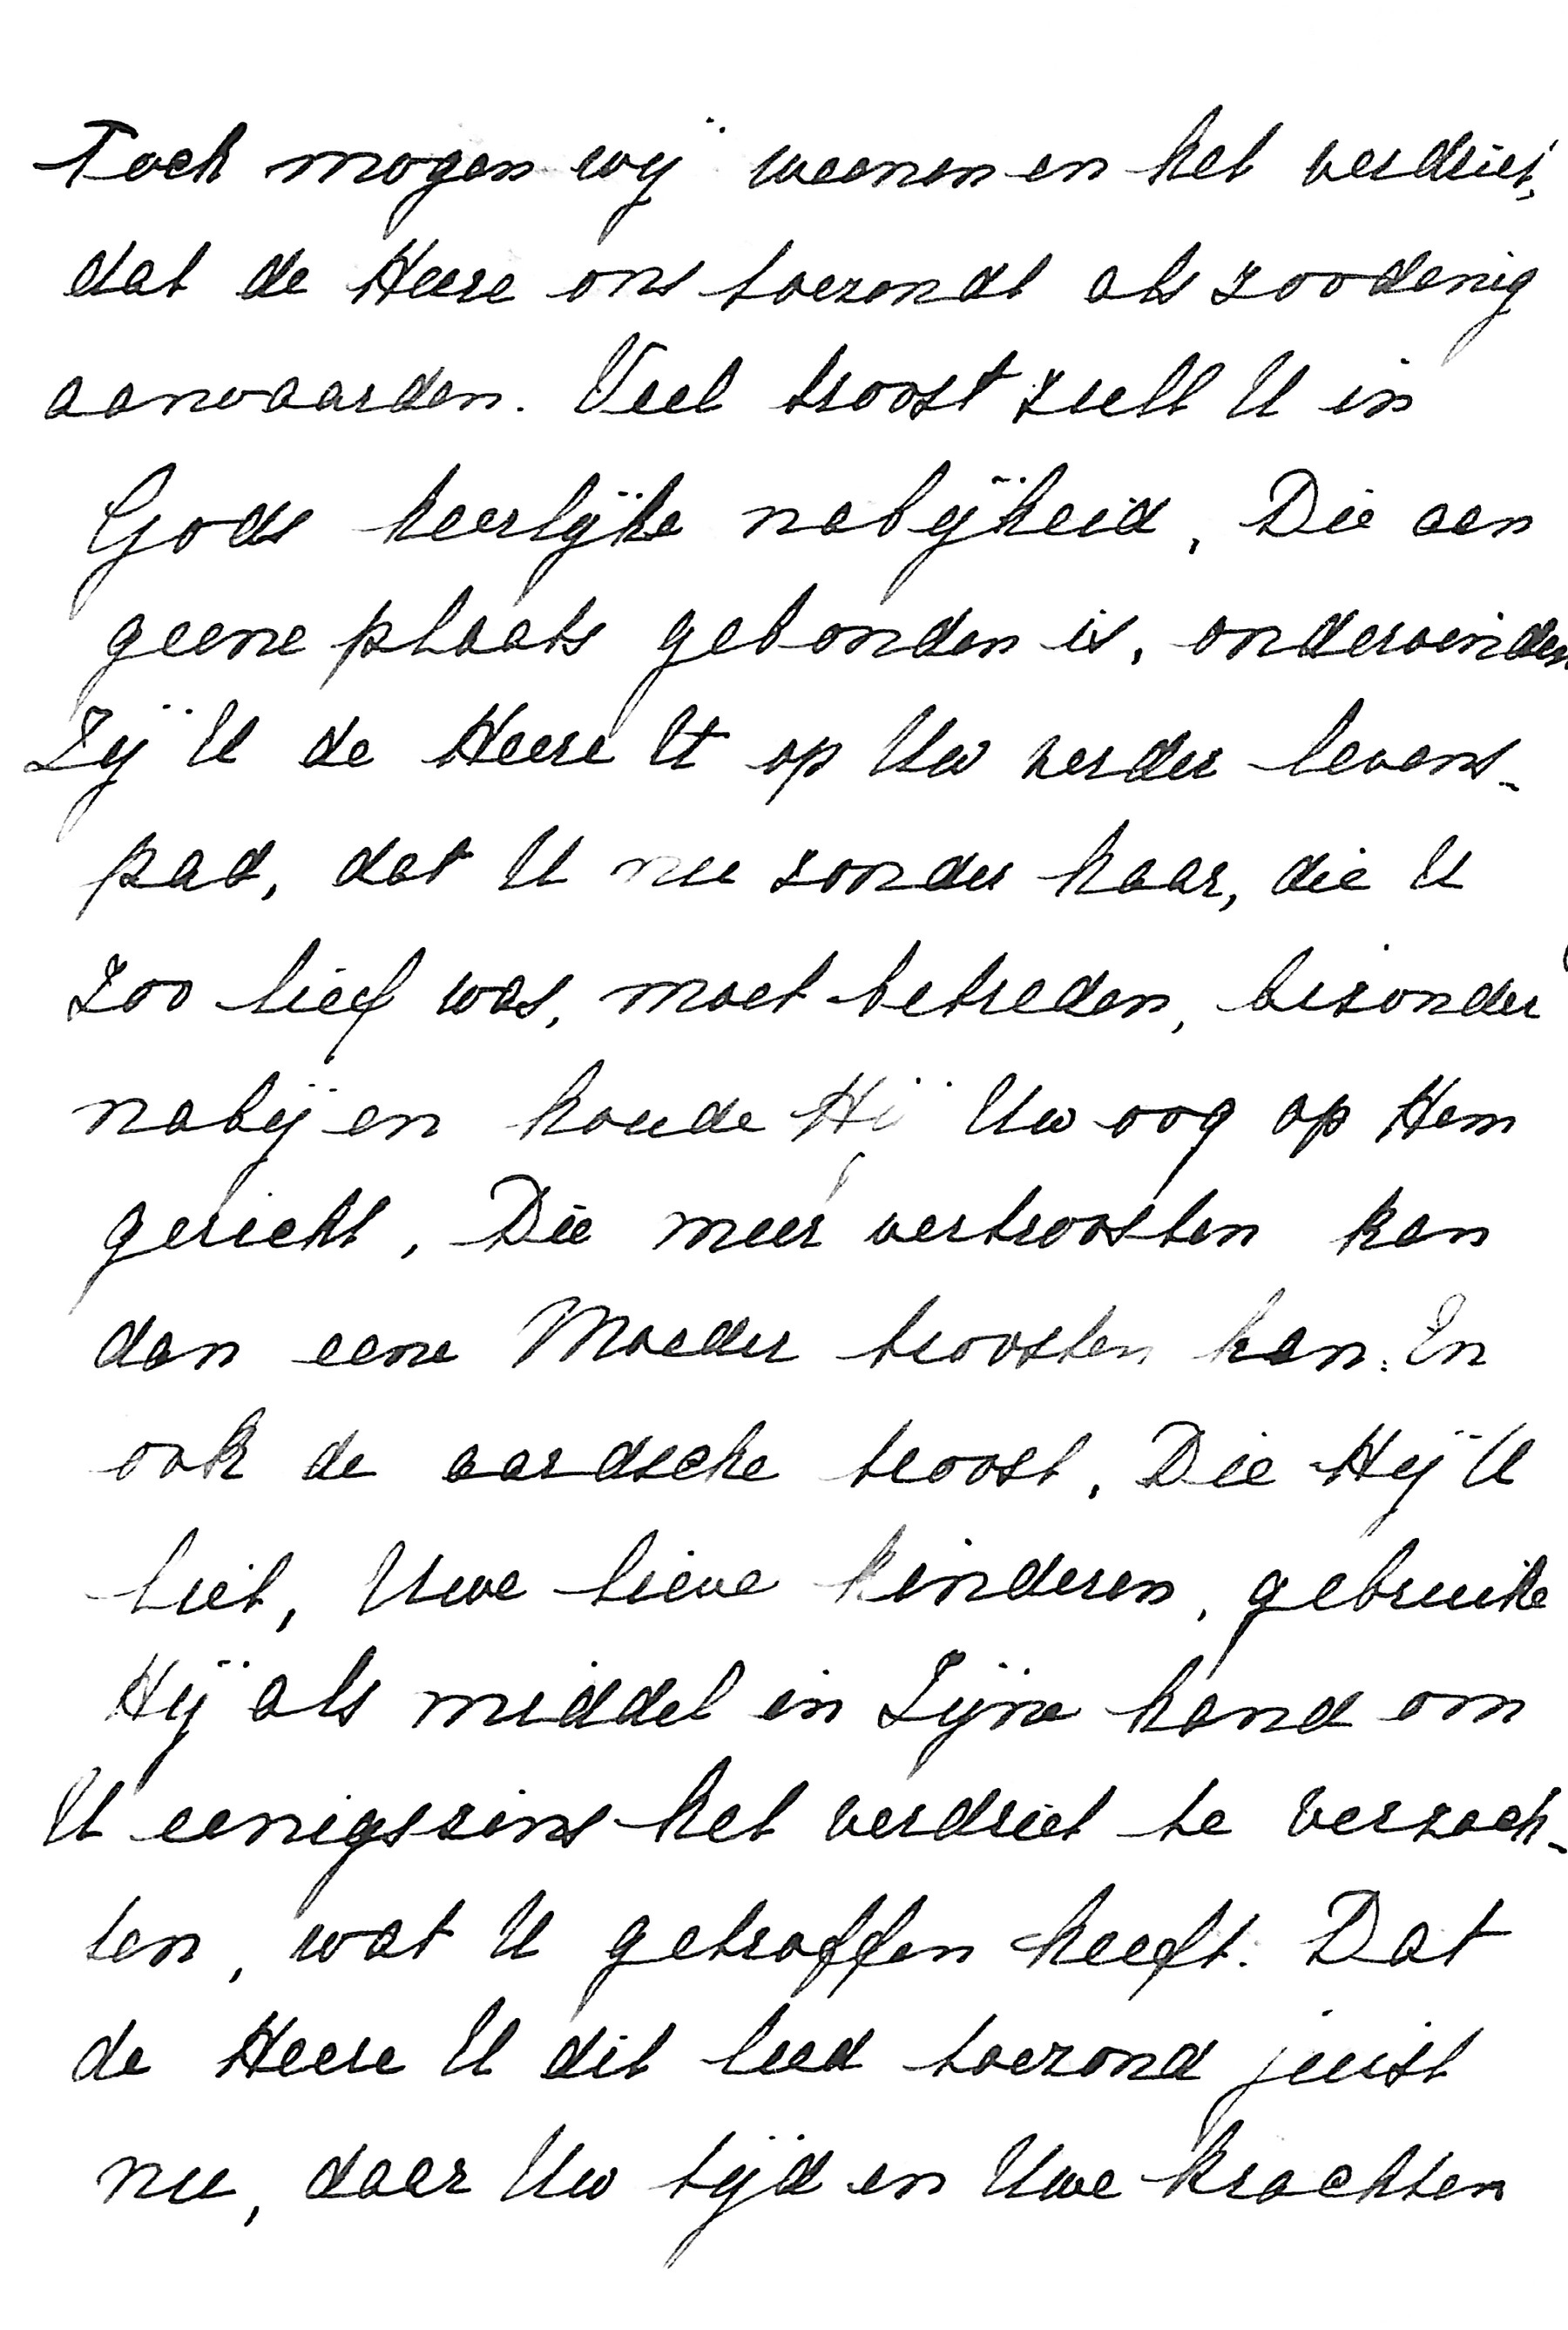 Toch mogen wij weenen en het verdriet,
dat de Heere ons toezondt als zoodanig
aanvaarden. Veel troost zult U in
Gods heerlijke nabijheid, Die aan
geene plaats gebonden is, ondervinden
Zij U de Heere U op Uw verder levens-
pad, dat U nu zonder haar, die U
zoo lief was, moet betreden, bizonder
nabij en houde Hij Uw oog op Hem
gericht, Die meer vertroosten kan
dan eene Moeder troosten kan. En
ook de aardsche troost, Die Hij U
liet, Uwe lieve kinderen, gebruike
Hij als middel in Zijne hand om
U eenigszins het verdriet te verzach-
ten, wat U getroffen heeft. Dat
de Heere U dit leed toezond juist
nu, daar Uw tijd en Uwe krachten